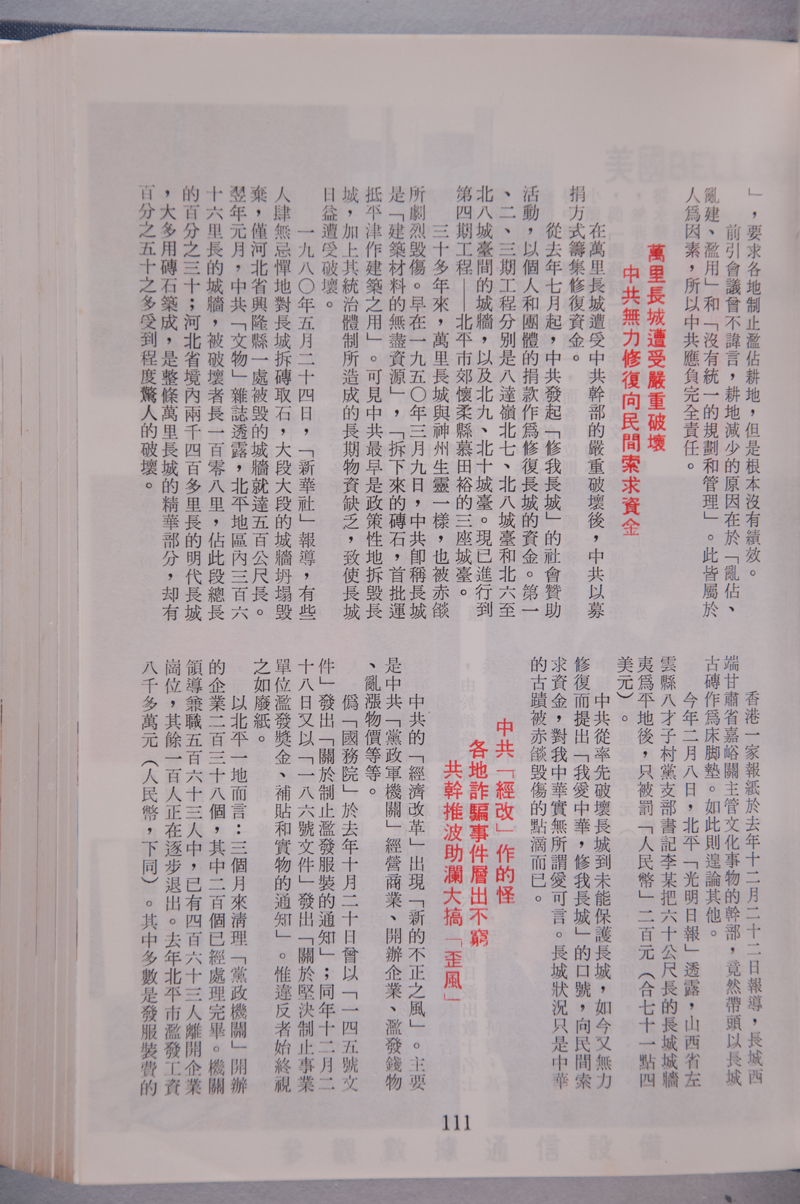 」，要求各地制止濫佔耕地，但是根本沒有績效。
前引會議曾不諱言，耕地減少的原因在於「亂佔、
亂建、濫用」和「沒有統一的規劃和管理」。此皆屬於
人爲因素，所以中共應負完全責任。
萬里長城遭受嚴重破壞
中共無力修復向民間索求資金
在萬里長城遭受中共幹部的嚴重破壞後，中共以募
捐方式籌集修復資金。
從去年七月起，中共發起「修我長城」的社會贊助
活動，以個人和團體的捐款作爲修復長城的資金。第一
、二、三期工程分別是八達嶺北七、北八城臺和北六至
北八城臺間的城牆，以及北九、北十城臺。現已進行到
第四期工程——北平市郊懷柔縣慕田裕的三座城臺。
三十多年來，萬里長城與神州生靈一樣，也被赤燄
所劇烈毀傷。早在一九五〇年三月九日，中共卽稱長城
是「建築材料的無盡資源」，「拆下來的磚石，首批運
抵平津作建築之用」。可見中共最早是政策性地拆毀長
城，加上其統治體制所造成的長期物資缺乏，致使長城
日益遭受破壞。
一九八〇年五月二十四日，「新華社」報導，有些
人肆無忌憚地對長城拆磚取石，大段大段的城牆坍塌毀
棄，僅河北省興隆縣一處被毀的城牆就達五百公尺長。
翌年元月，中共「文物」雜誌透露，北平地區內三百六
十六里長的城牆，被破壞者長一百零八里，佔此段總長
的百分之三十；河北省境內兩千四百多里長的明代長城
，大多用磚石築成，是整條萬里長城的精華部分，却有
百分之五十之多受到程度驚人的破壞。
香港一家報紙於去年十二月二十二日報導，長城西
端甘肅省嘉峪關主管文化事物的幹部，竟然帶頭以長城
古磚作爲床脚墊。如此則遑論其他。
今年二月八日，北平「光明日報」透露，山西省左
雲縣八才子村黨支部書記李某把六十公尺長的長城城牆
夷爲平地後，只被罰「人民幣」二百元（合七十一點四
美元）。
中共從率先破壞長城到未能保護長城，如今又無力
修復而提出「我愛中華，修我長城」的口號，向民間索
求資金，對我中華實無所謂愛可言。長城狀況只是中華
的古蹟被赤燄毀傷的點滴而已。
中共「經改」作的怪
各地詐騙事件層出不窮
共幹推波助瀾大搞「歪風」
中共的「經濟改革」出現「新的不正之風」。主要
是中共「黨政軍機關」經營商業、開辦企業、濫發錢物
、亂漲物價等等。
僞「國務院」於去年十月二十日曾以「一四五號文
件」發出「關於制止濫發服裝的通知」；同年十二月二
十八日又以「一八六號文件」發出「關於堅決制止事業
單位濫發獎金、補貼和實物的通知」。惟違反者始終視
之如廢紙。
以北平一地而言：三個月來清理「黨政機關」開辦
的企業二百三十八個，其中二百個已經處理完畢。機關
領導兼職五百六十三人中，已有四百六十三人離開企業
崗位，其餘一百人正在逐步退出。去年北平市濫發工資
八千多萬元（人民幣，下同）。其中多數是發服裝費的
111